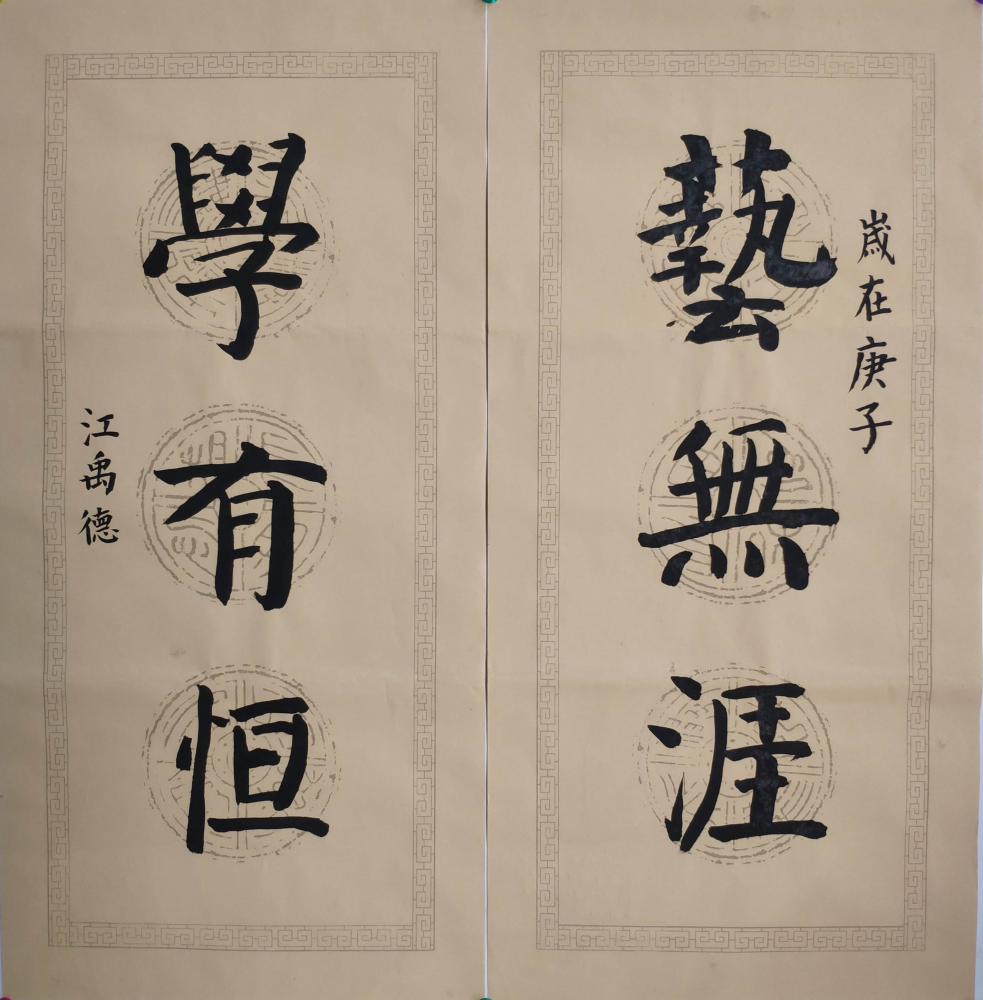 歲在庚子
藝無涯
學有恒
江禹德